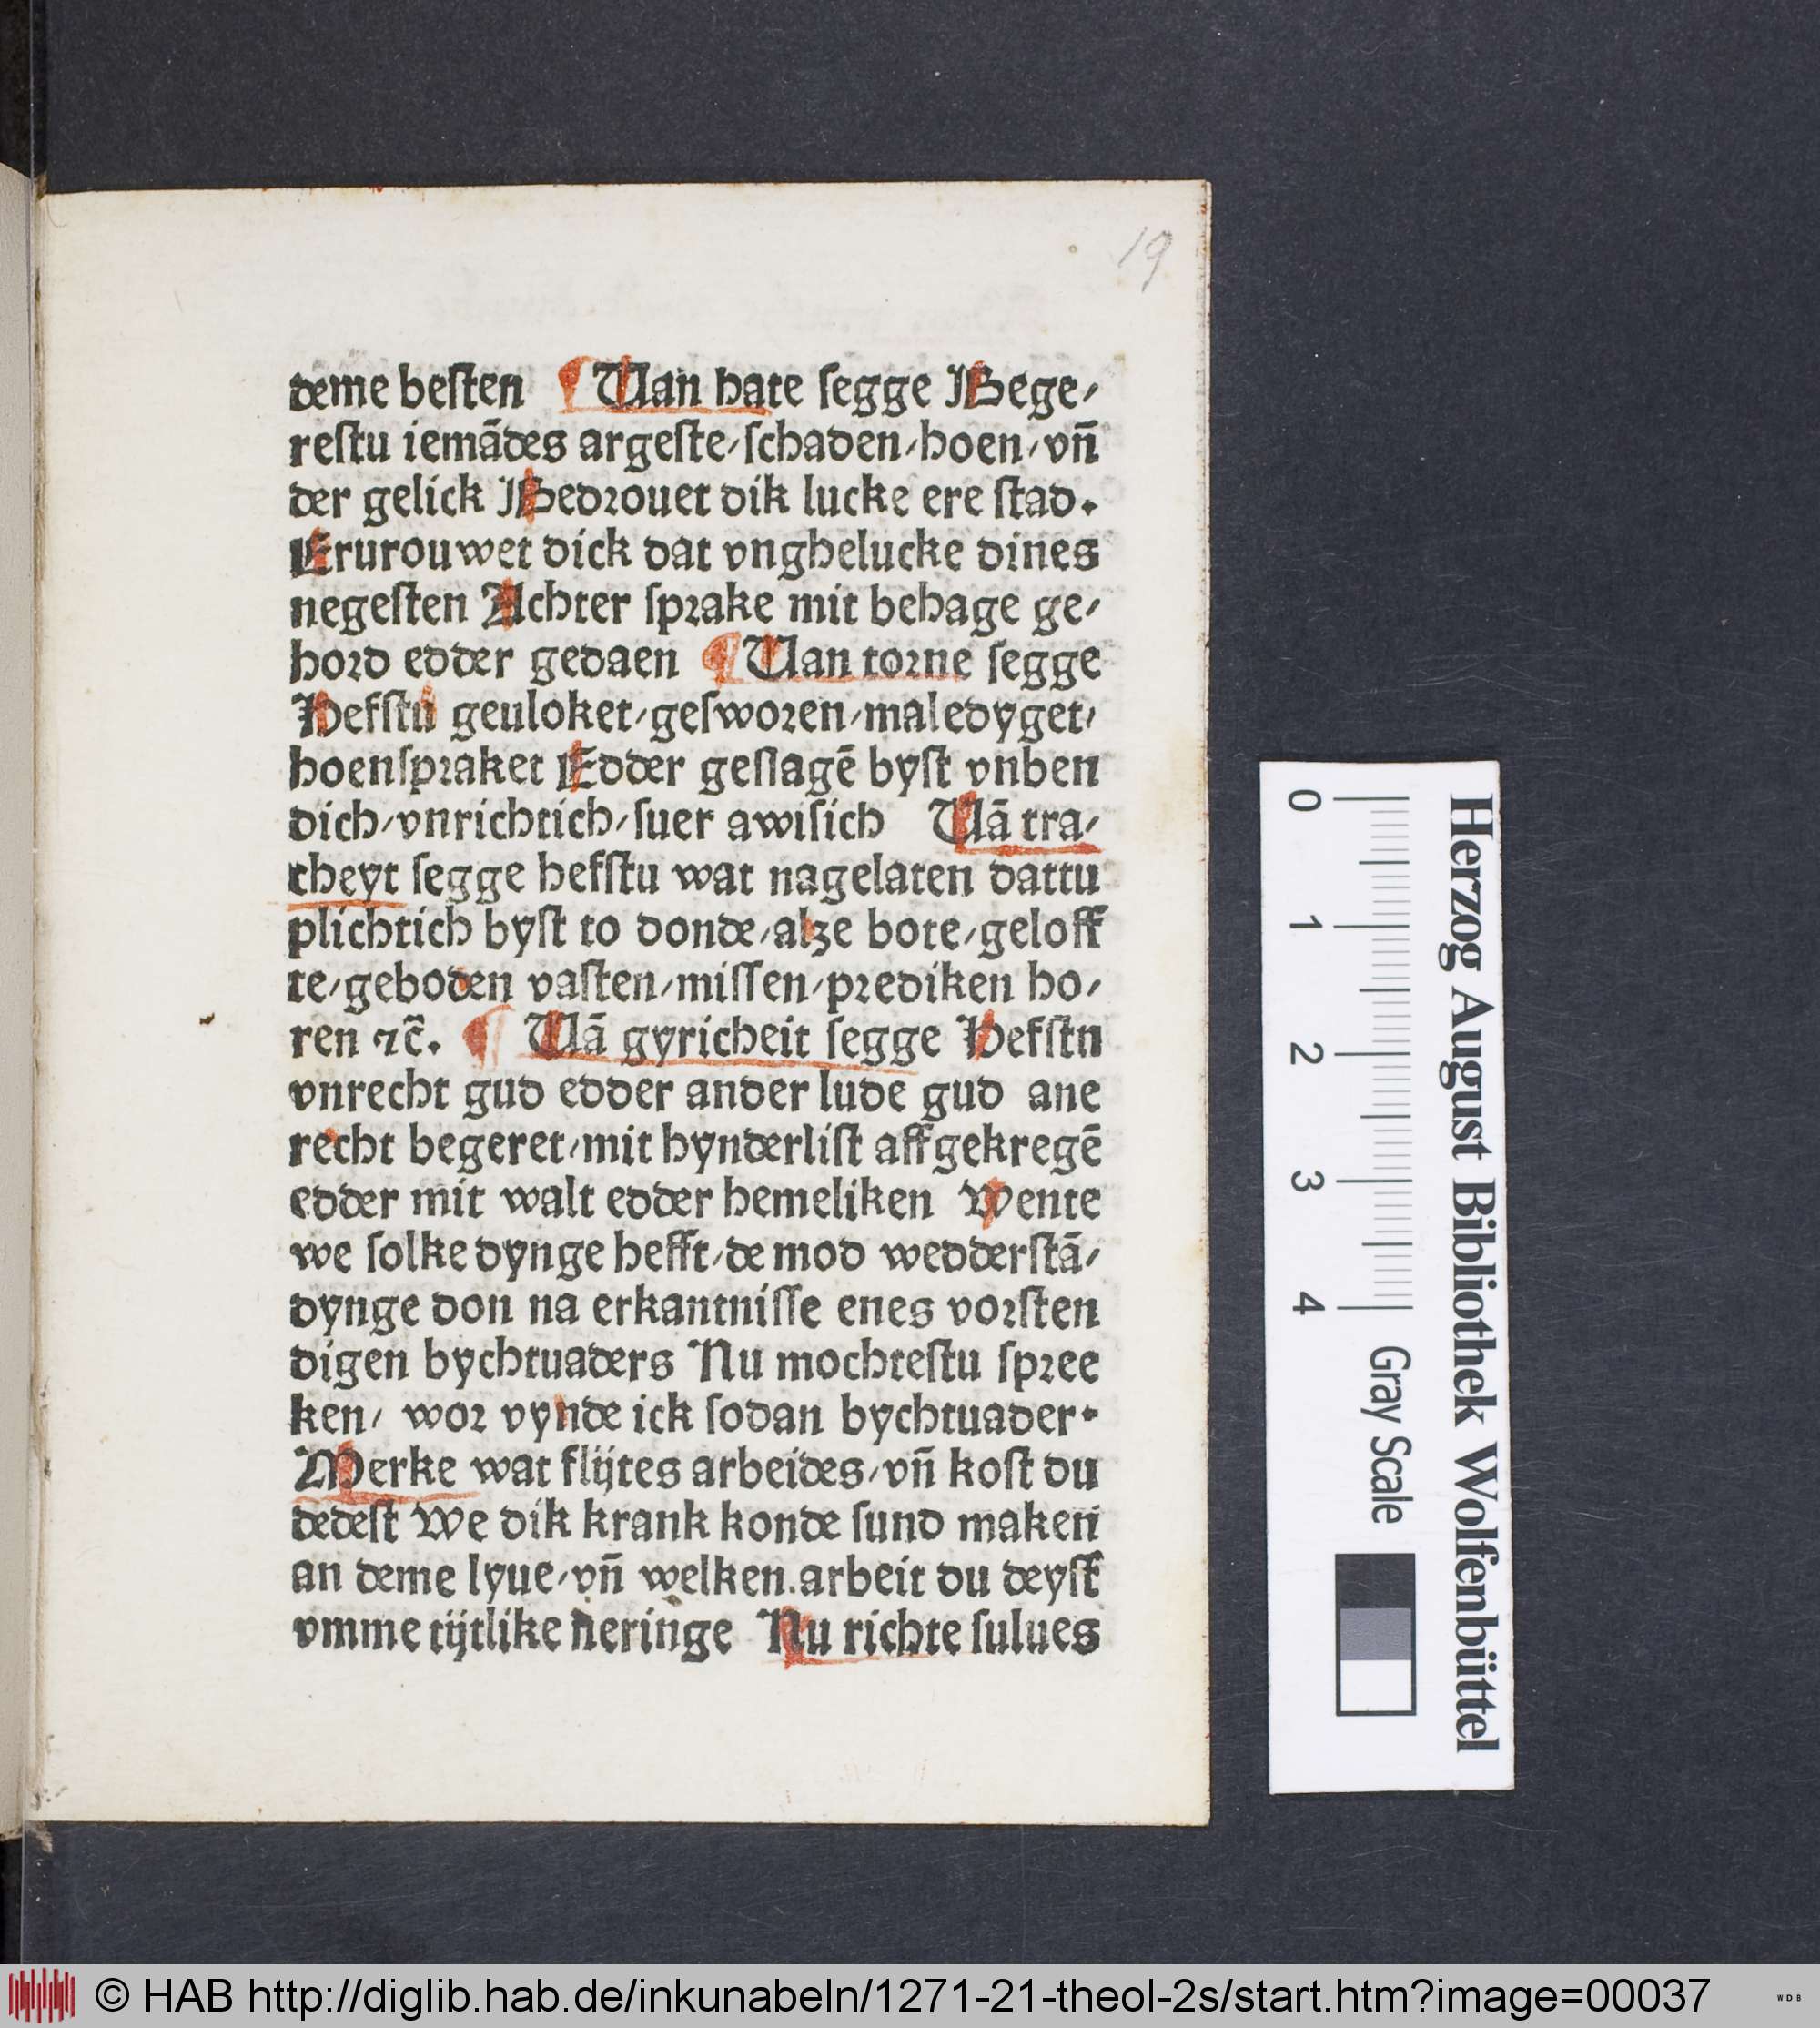 19
deme beſten ¶ Uan hate ſegge Bege⸗
reſtu iemādes argeſte/ſchaden/hoen/vn̄
der gelick Bedꝛouet dik lucke ere ſtad.
Erurouwet dick dat vnghelucke dines
negeſten Achter ſpꝛake mit behage ge⸗
hoꝛd edder gedaen ¶ Uan toꝛne ſegge
Hefſtu geuloket/geſwoꝛen/maledyget/
hoenſpꝛaket Edder geſlagē byſt vnben
dich/vnrichtich/ſuer awiſich Uā tra⸗
cheyt ſegge hefſtu wat nagelaten dattu
plichtich byſt to donde/alʒe bote/geloff
te/geboden vaſten/miſſen/pꝛediken ho⸗
ren ⁊c̄. ¶ Uā gyricheit ſegge Hefſtn
vnrecht gud edder ander lude gud ane
recht begeret/mit hynderliſt affgekregē
edder mit walt edder hemeliken Wente
we ſolke dynge hefft/de mod wedderſtā⸗
dynge don na erkantniſſe enes voꝛſten
digen bychtuaders Nu mochteſtu ſpꝛee
ken/ woꝛ vynde ick ſodan bychtuader.
Merke wat flijtes arbeides/vn̄ koſt du
dedeſt We dik krank konde ſund maken
an deme lyue/vn̄ welken.arbeit du deyſt
vmme tijtlike neringe Nu richte ſulues
Herzog August Bibliothek Wolfenbüttel
0 1 2 3 4 Gray Scale
© HAB http://diglib.hab.de/inkunabeln/1271-21-theol-2s/start.htm?image=00037
WDB